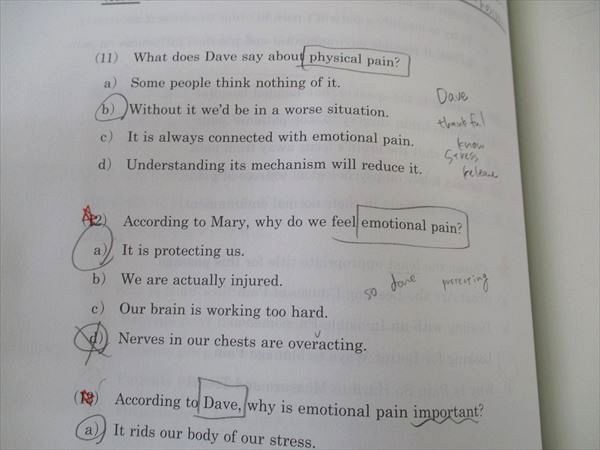 (11) What does Dave say about physical pain?
a) Some people think nothing of it.
b) Without it we'd be in a worse situation.
c) It is always connected with emotional pain.
d) Understanding its mechanism will reduce it.
Dave
thankful
know
stress
release
(12) According to Mary, why do we feel emotional pain?
a) It is protecting us.
b) We are actually injured.
c) Our brain is working too hard.
d) Nerves in our chests are overacting.
so Dave protecting
(13) According to Dave, why is emotional pain important?
a) It rids our body of our stress.